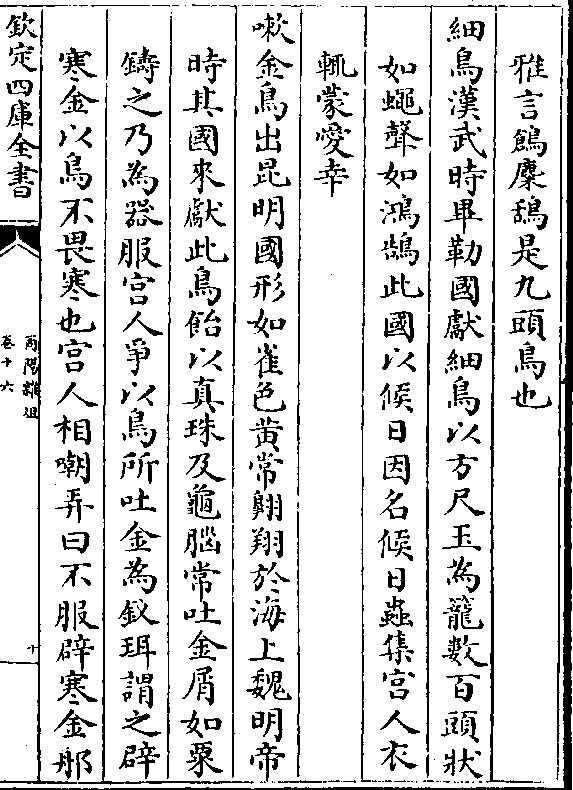 雅言鶬麋鴰是九頭鳥也
細鳥漢武時畢勒國獻細鳥以方尺玉為籠數百頭狀
如蠅聲如鴻鵠此國以候日因名候日蟲集宫人衣
輒蒙愛幸
嗽金鳥出昆明國形如雀色黄常翺翔於海上魏明帝
時其國來獻此鳥飴以真珠及龜腦常吐金屑如粟
鑄之乃為器服宫人爭以鳥所吐金為釵珥謂之辟
寒金以鳥不畏寒也宫人相嘲弄曰不服辟寒金那
欽定四庫全書
酉陽雜俎
卷十六
十